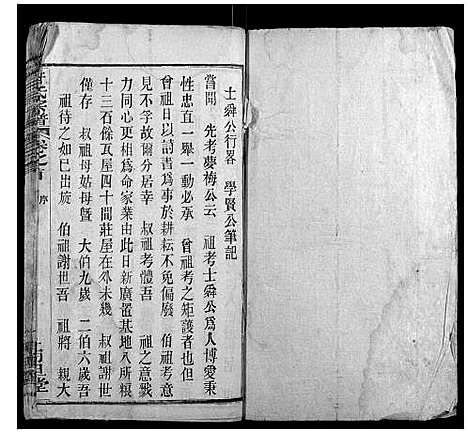 士舜公行畧　學賢公筆記
嘗聞　先考夢梅公云　祖考士舜公爲人博愛秉
性忠直一舉一動必承　曾祖考之矩謢者也但
曾祖日以詩書爲事於耕耘不免偏廢　伯祖考意
見不孚故爾分居幸　叔祖考體吾　祖之意戮
力同心更相爲命家業由此日新廣置基地八所糧
十三石餘瓦屋四十間莊屋在外未幾　叔祖謝世
僅存　叔祖母姑母曁　大伯九歲　二伯六歲吾
祖待之如已出旋　伯祖謝世吾　祖將　親大
氏宗譜
卷之首
序